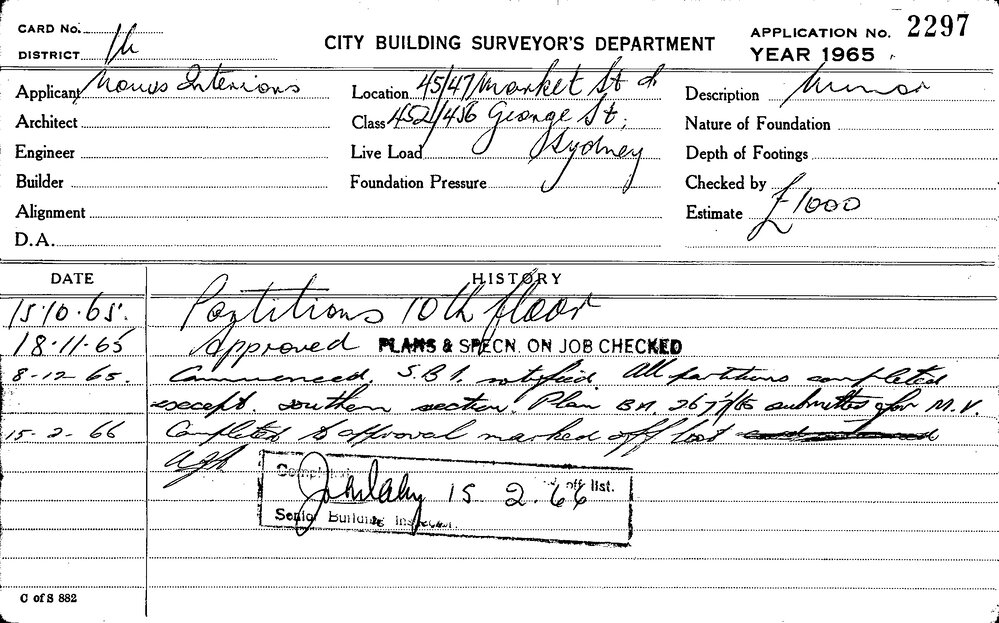 CARD No.
DISTRICT
CITY BUILDING SURVEYOR'S DEPARTMENT
APPLICATION No. 2297
YEAR 1965
Applicant Interiors
Architect
Engineer
Builder
Alignment
D.A.
Location 45/47 Market St &
Class 452/456 George St,
Live Load Sydney
Foundation Pressure
Description Minor
Nature of Foundation
Depth of Footings
Checked by
Estimate £1000
DATE HISTORY
15.10.65. Partitions 10th floor
18.11.65 Approved PLANS & SPECN. ON JOB CHECKED
8-12-65. Commenced. S.B.I. notified. All partitions completed
except southern section. Plan BM. submitted for M.V.
15-2-66 Completed & approval marked off
off list.
15 2.66
Senior Building Inspector.
C of S 882